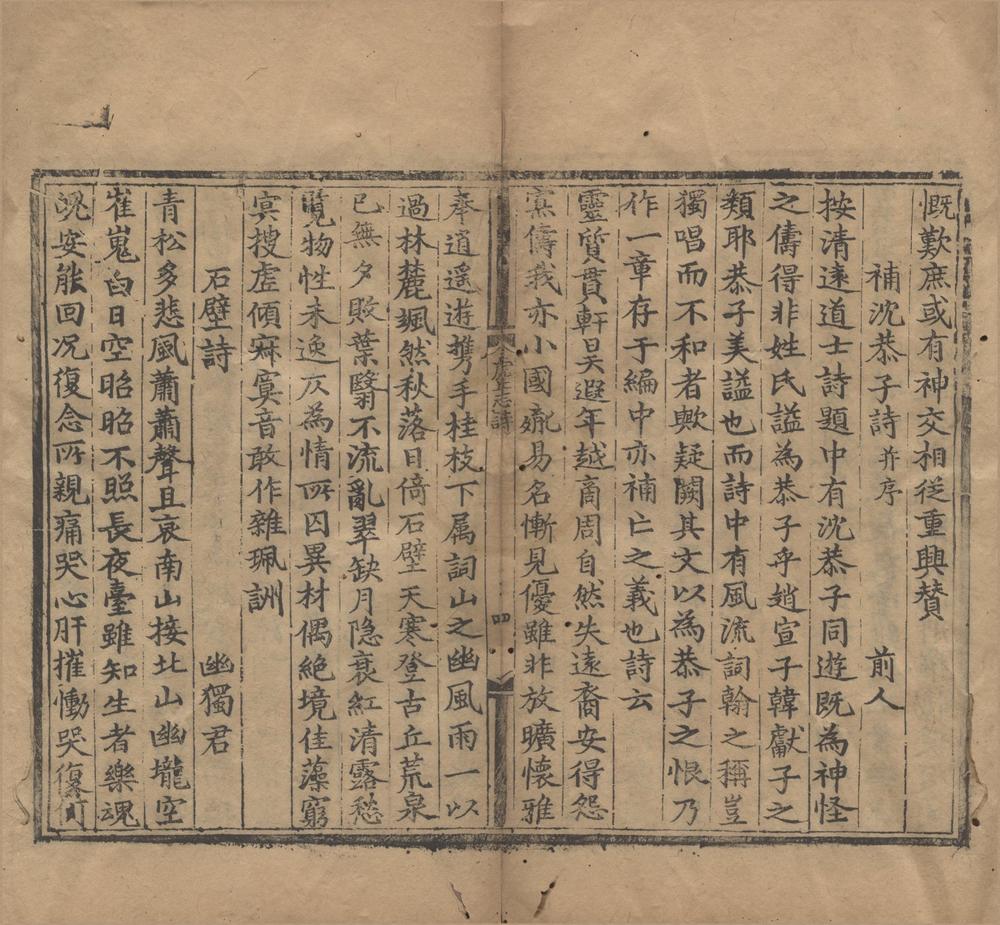 慨歎庶或有神交相從重興贊
補沈恭子詩并序　前人
按清遠道士詩題中有沈恭子同遊既為神怪
之儔得非姓氏謚為恭子乎趙宣子韓獻子之
類耶恭子美謚也而詩中有風流詞翰之稱豈
獨唱而不和者歟疑闕其文以為恭子之恨乃
作一章存于編中亦補亡之義也詩云
靈質貫軒昊遐年越商周自然失遠裔安得怨
寡儔我亦小國胤易名慚見優雖非放曠懷雅
奉逍遥遊携手桂枝下属詞山之幽風雨一以
過林麓颯然秋落日倚石壁天寒登古丘荒泉
已無夕敗葉翳不流亂翠缺月隐衰紅清露愁
覽物性未逸反為情所囚異材偶絶境佳藻窮
㝠搜虛傾寂寞音敢作雜珮詶
石壁詩　幽獨君
青松多悲風蕭蕭聲且哀南山接北山幽壠空
崔嵬白日空昭昭不照長夜臺雖知生者樂魂
魄安能回况復念所親痛哭心肝摧慟哭復何
虎丘志詩
四